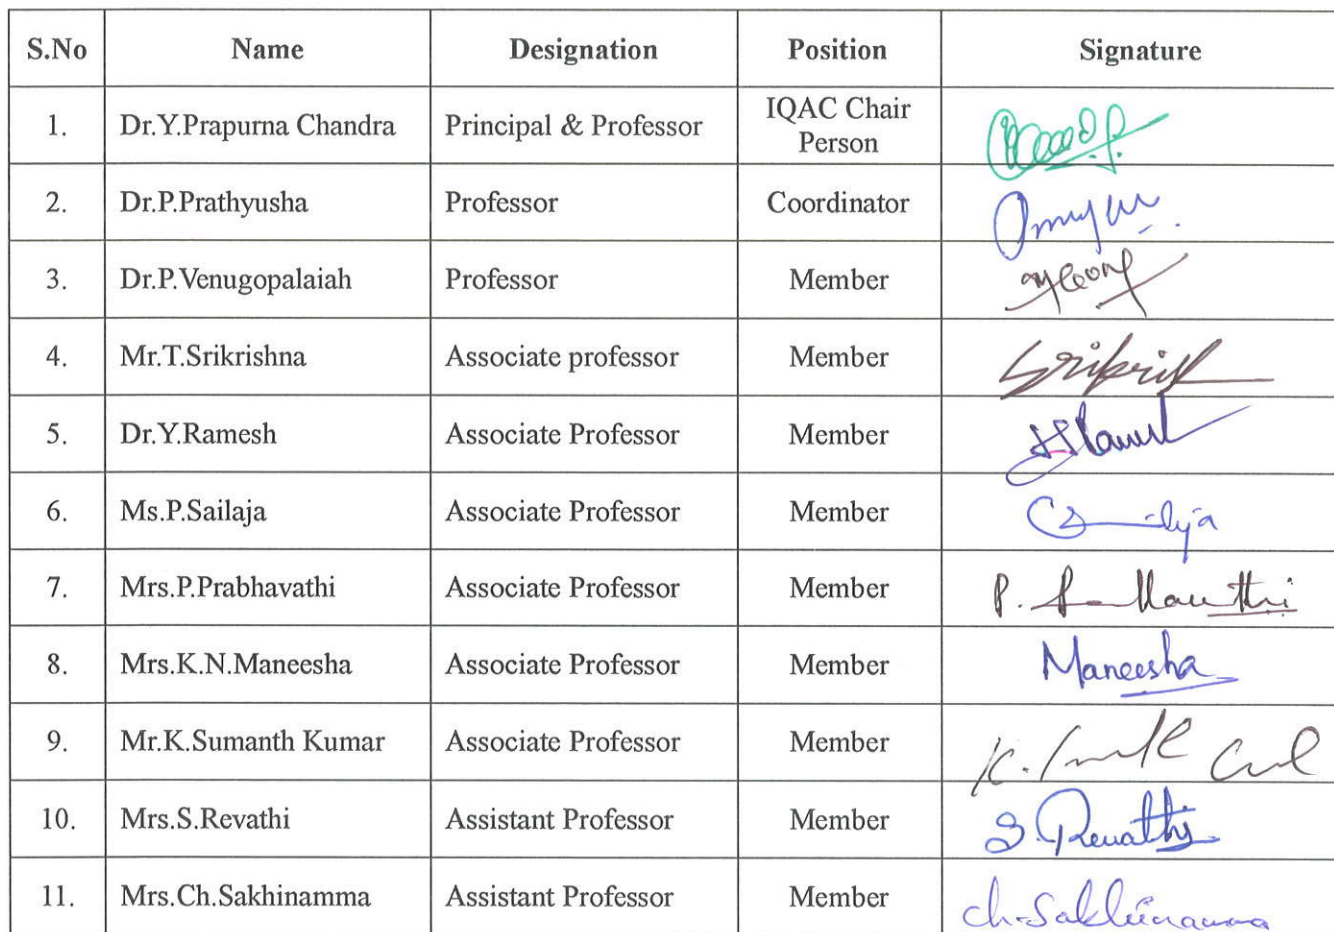 S.No Name Designation Position Signature
1. Dr.Y.Prapurna Chandra Principal & Professor IQAC Chair
Person
2. Dr.P.Prathyusha Professor Coordinator
3. Dr.P.Venugopalaiah Professor Member
4. Mr.T.Srikrishna Associate professor Member
5. Dr.Y.Ramesh Associate Professor Member
6. Ms.P.Sailaja Associate Professor Member
7. Mrs.P.Prabhavathi Associate Professor Member
8. Mrs.K.N.Maneesha Associate Professor Member Maneesha
9. Mr.K.Sumanth Kumar Associate Professor Member
10. Mrs.S.Revathi Assistant Professor Member S.Revathi
11. Mrs.Ch.Sakhinamma Assistant Professor Member ch.Sakhinamma